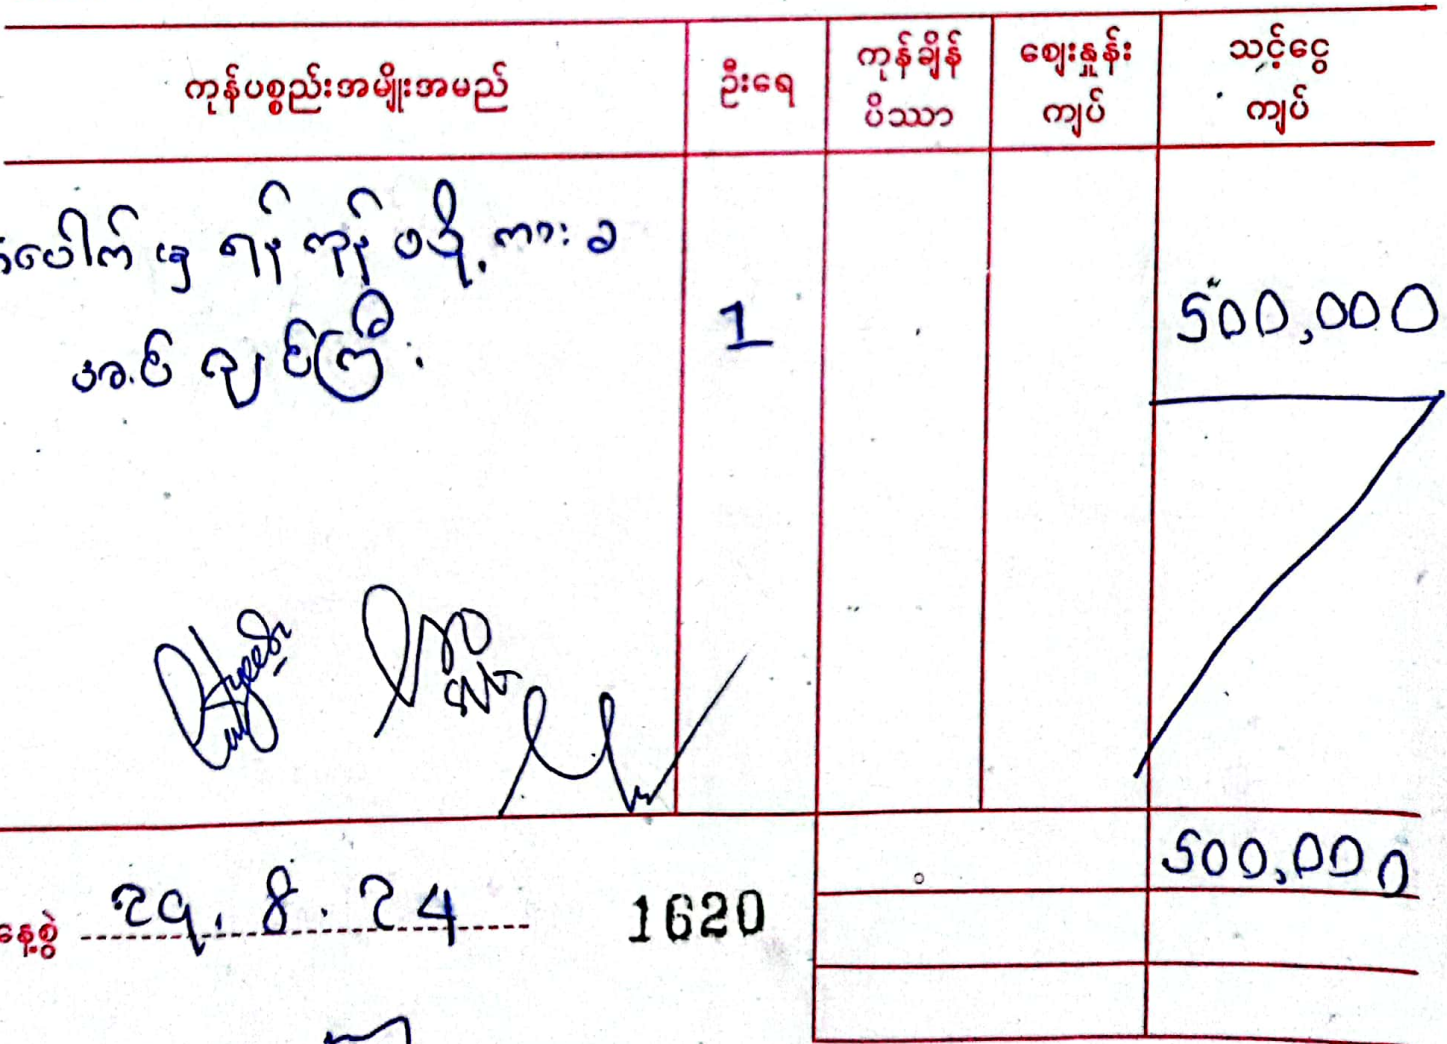 ကုန်ပစ္စည်းအမျိုးအမည် ဦးရေ ကုန်ချိန် ပိဿာ ဈေးနှုန်း ကျပ် သင့်ငွေ ကျပ်
ပေါက် မှ ရန်ကုန် ပို့ ကား ခ
1 500,000
500,000
နေ့စွဲ 29.8.24 1620